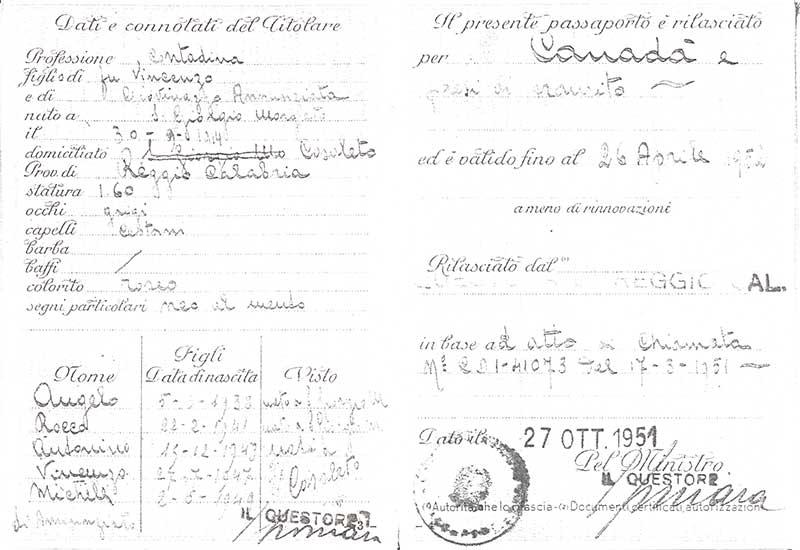 Dati e connotati del Titolare
Professione Contadina
figlio di fu Vincenzo
e di Giovinazzo Annunziata
nato a S. Giorgio Morgeto
il 30 - 9 -
domiciliato Cosoleto
Prov. di Reggio Calabria
statura 1.60
occhi grigi
capelli Castani
barba
baffi /
colorito roseo
segni particolari neo al mento
Figli
Nome Data di nascita Visto
Angelo 1938 nato a
Rocco 22-2-1941 nato a
Antonino 15-12-1943 nati a
Vincenzo 27-7-1947 Cosoleto
Michele 2-6-1949
di Annunziato
IL QUESTORE
Il presente passaporto è rilasciato
per Canadà e
paesi di transito
ed è valido fino al 26 Aprile 1952
a meno di rinnovazioni
Rilasciato dal (1)
REGGIO CAL.
in base ad atto di chiamata
N° 41073 del 17-3-1951
Dato il 27 OTT. 1951
Pel Ministro
IL QUESTORE
(1) Autorità che lo rilascia - (2) Documenti, certificati, autorizzazioni